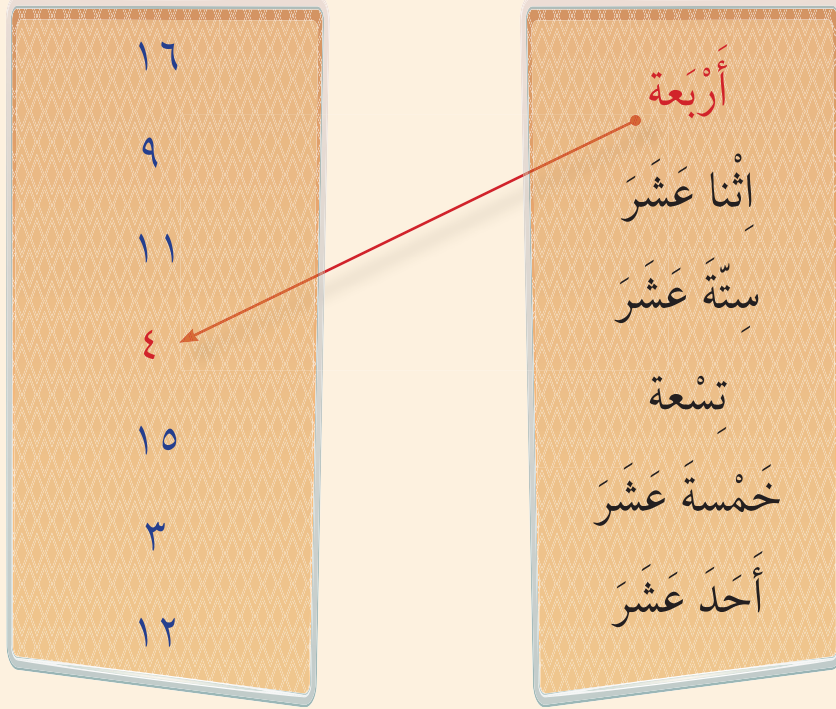 أَرْبَعة
اِثْنا عَشَرَ
سِتَّةَ عَشَرَ
تِسْعة
خَمْسةَ عَشَرَ
أَحَدَ عَشَرَ
١٦
٩
١١
٤
١٥
٣
١٢